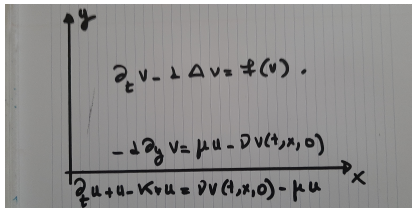 y
∂_t v - d Δ v = f(v) .
- d ∂_y v = μ u - ν v(t,x,0)
x
∂_t u + u - K * u = ν v(t,x,0) - μ u